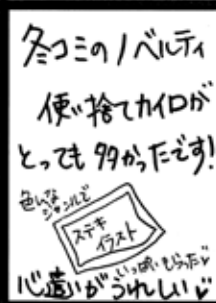 冬コミのノベルティ
使い捨てカイロが
とっても多かったです!
色んな
ジャンルで
ステキ
イラスト
いっぱいもらった♥
心遣いがうれしい♥